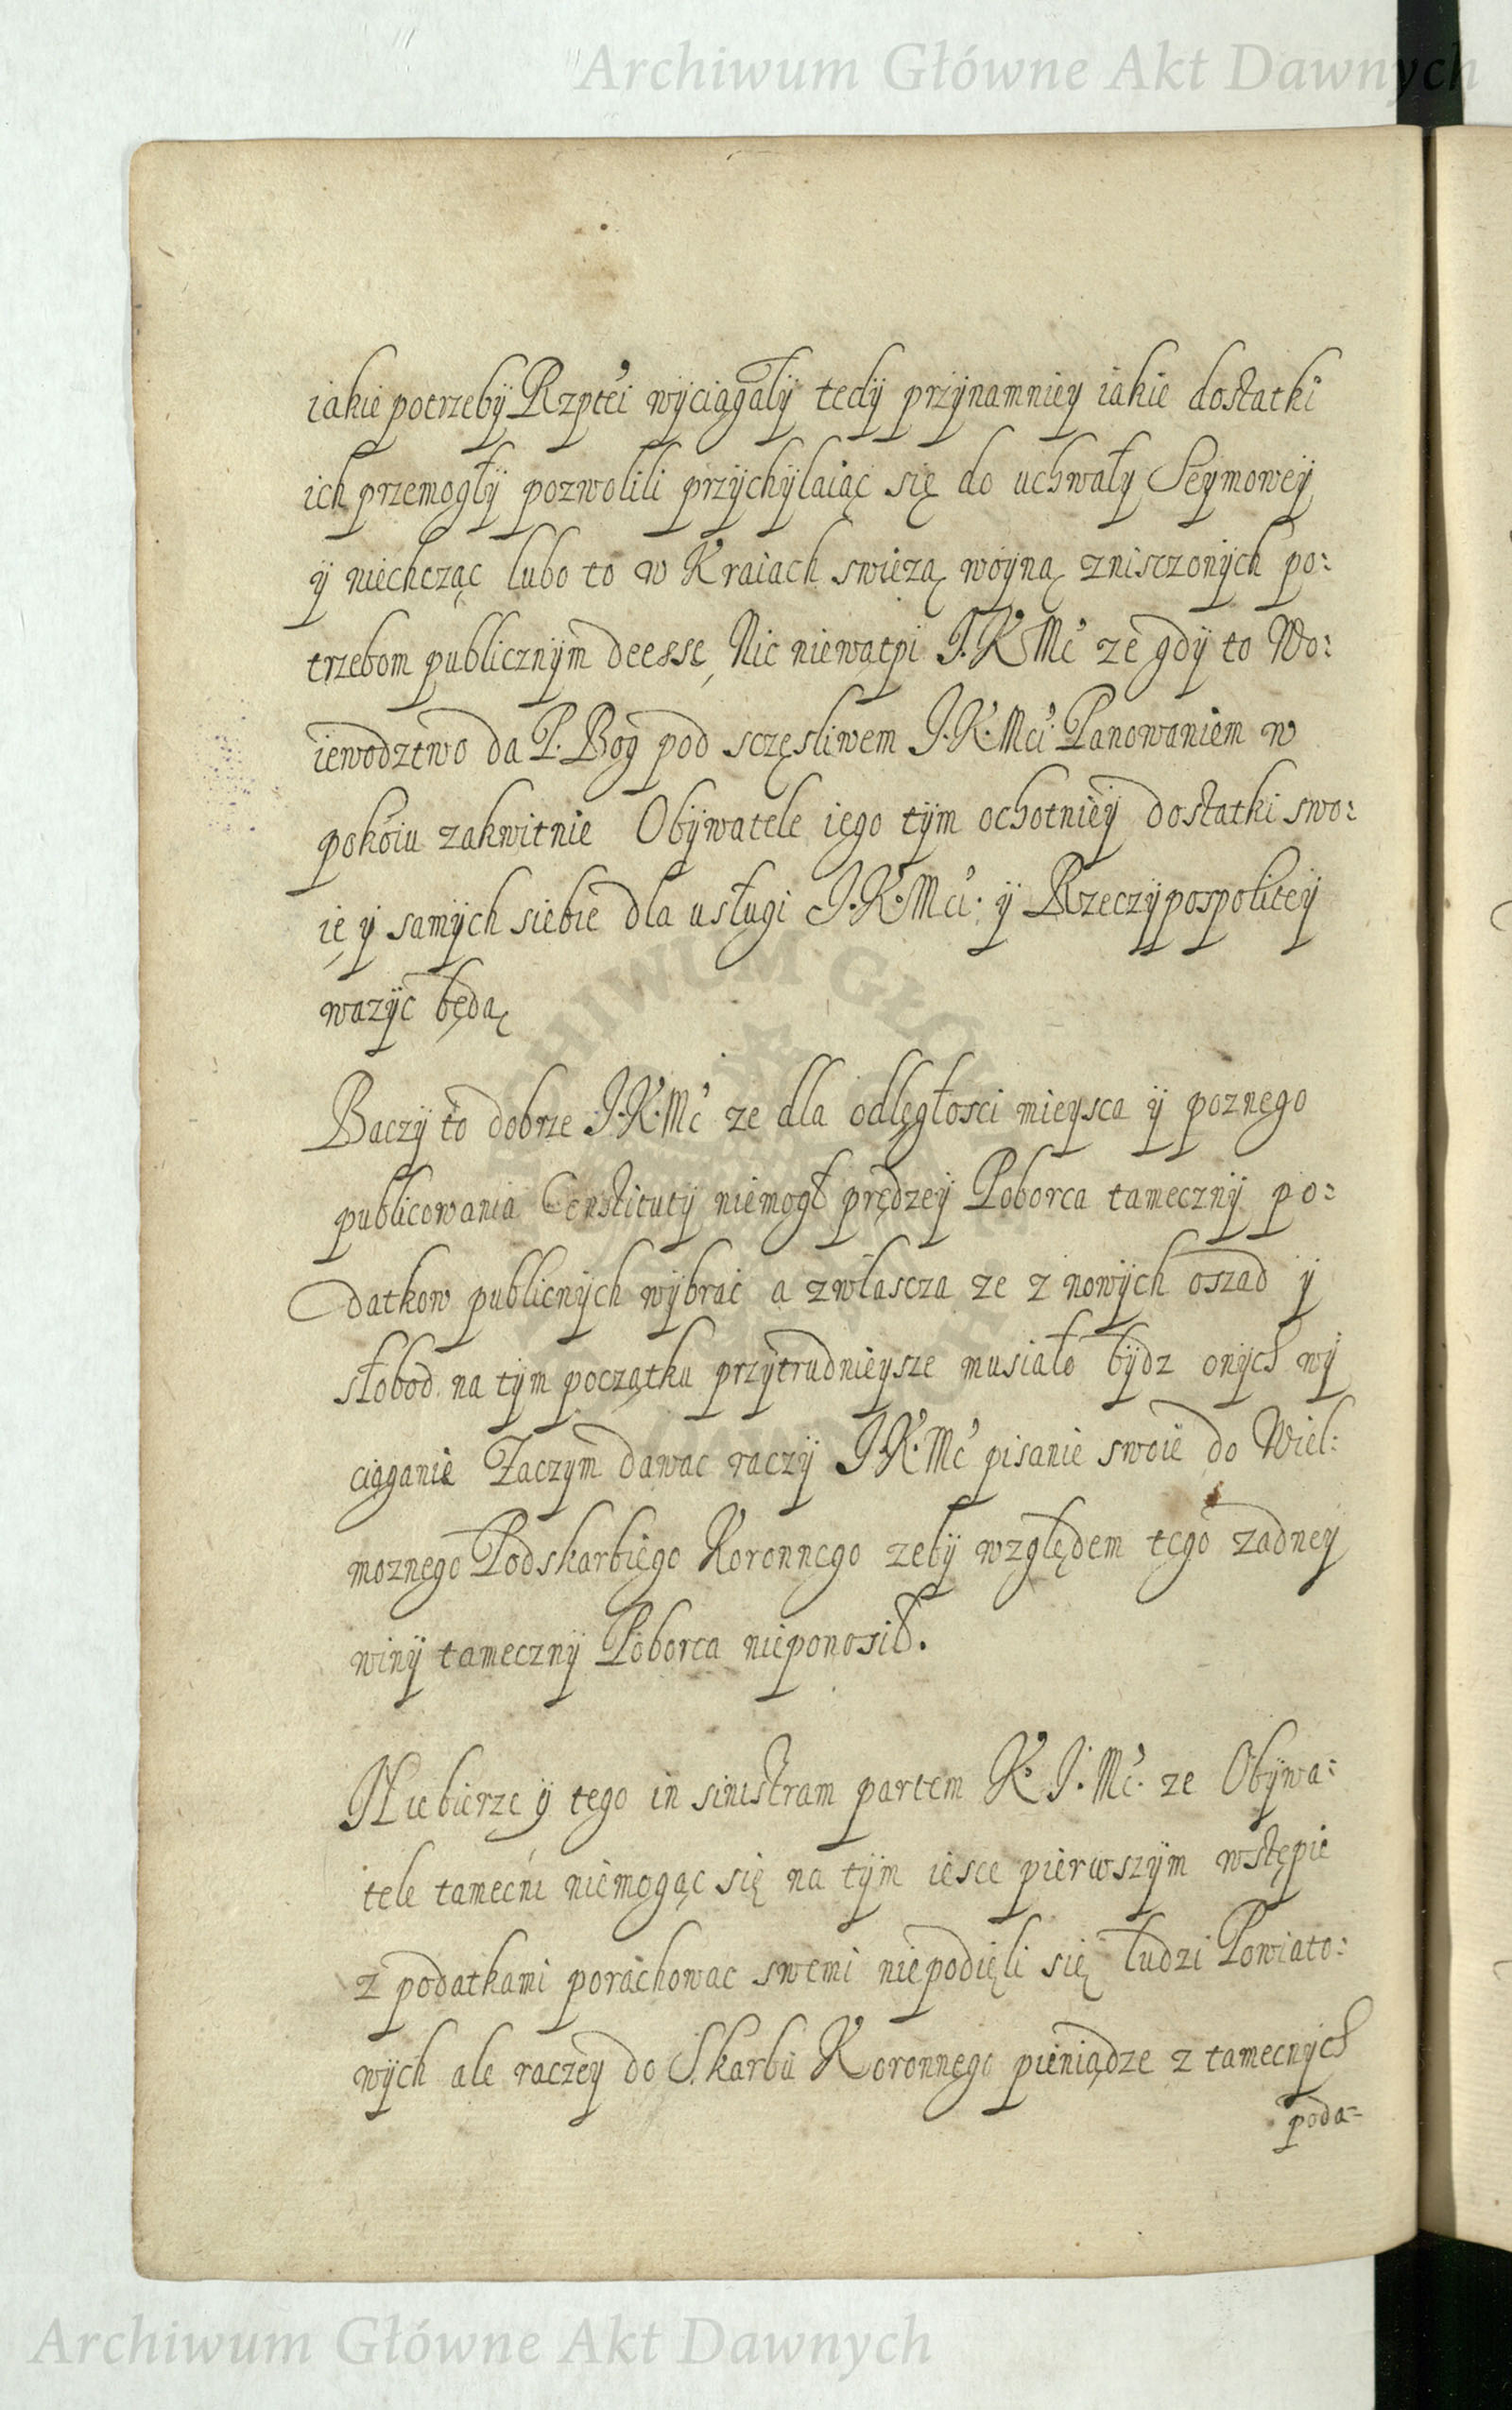 Archiwum Główne Akt Dawnych
iakie potrzeby Rzptei wyciągały tedy przynamniey iakie dostatki
ich przemogły pozwolili przychylaiąc się do uchwały Seymowey
y niechcząc lubo to w Kraiach swiezą woyną znisczonych po:
trzebom publicznym deesse, Nic niewątpi J. K Mć ze gdy to Wo:
iewodztwo da P. Bog pod sczęsliwem J. K. Mci Panowaniem w
pokoiu zakwitnie Obywatele iego tym ochotniey dostatki swo:
ie y samych siebie dla usługi J. K. Mci. y Rzeczypospolitey
wazyc będą
Baczy to dobrze J. K. Mć ze dla odległosci mieysca y poznego
publicowania Constituty niemogł prędzey Poborca tameczny po:
datkow publicnych wybrać a zwłascza ze z nowych oszad y
słobod na tym początku przytrudnieysze musiało bydz onych wy
ciąganie Zaczym dawac raczy J. K. Mć pisanie swoie do Wiel:
moznego Podskarbiego Koronnego zeby względem tego zadney
winy tameczny Poborca nieponosił.
Niebierze y tego in sinistram partem K. J. Mć. ze Obywa:
tele tamecni niemogąc się na tym iesce pierwszym wstępie
z podatkami porachowac swemi niepodięli się ludzi Powiato:
wych ale raczey do Skarbu Koronnego pieniądze z tamecnych
poda=
Archiwum Główne Akt Dawnych